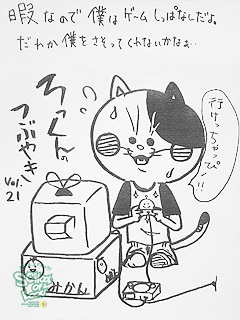 暇なので僕はゲームしっぱなしだよ
だれか僕をさそってくれないかなぁ…
ろっくんの
つぶやき
Vol.
21
行けっちゃっぴ!!
みかん